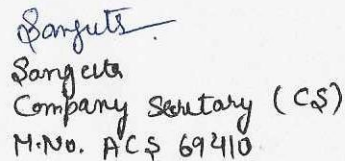 Sangeeta
Company Secretary (CS)
M.No. ACS 69410